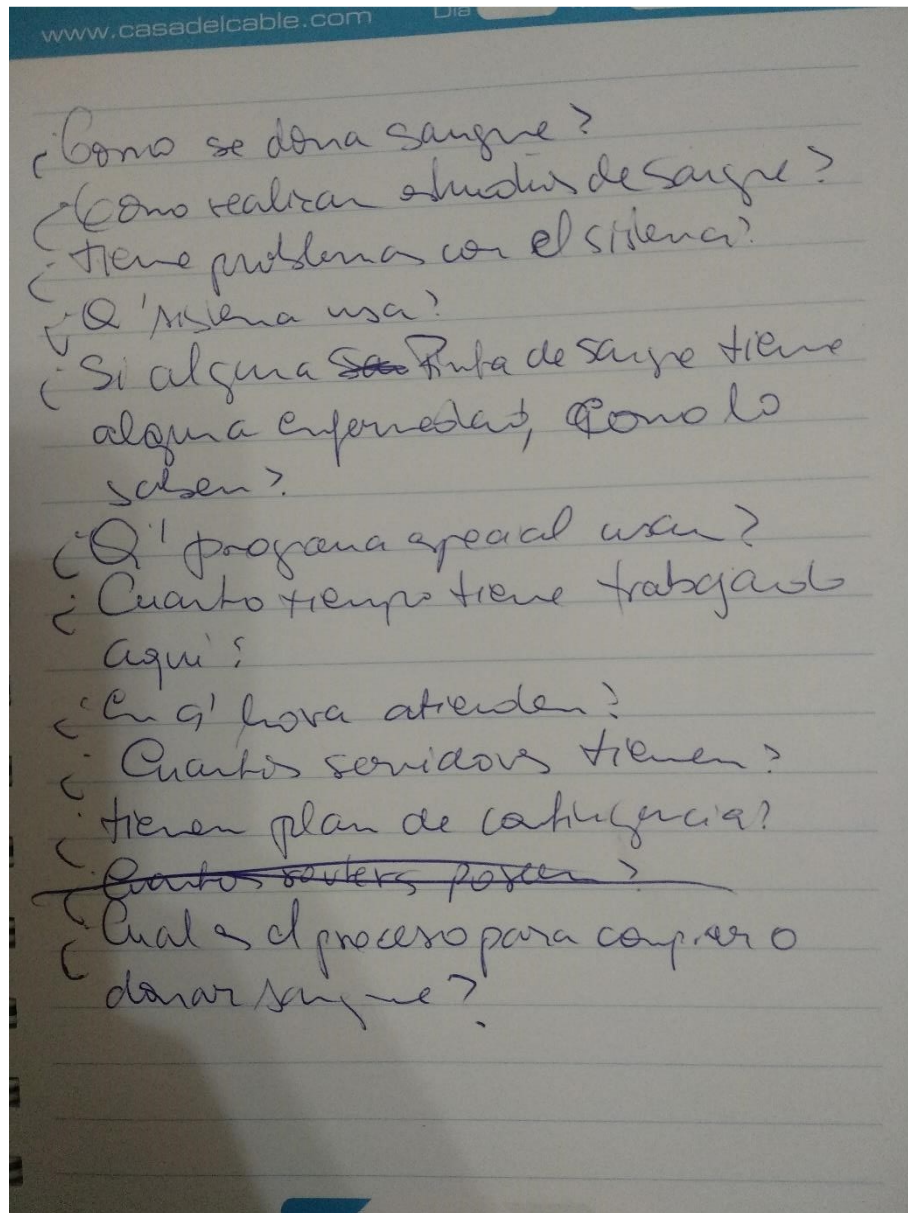 www.casadelcable.com Dia
¿Como se dona sangre?
¿Como realizan estudios de sangre?
¿tiene problemas con el sistema?
¿Q' sistema usa?
¿Si alguna Pinta de sangre tiene
alguna enfermedad, Como lo
saben?
¿Q' programa special usan?
¿Cuanto tiempo tiene trabajando
aqui?
¿En q' hora atienden?
¿Cuantos servidores tienen?
¿tienen plan de contingencia?
¿Cuantos routers poseen?
¿Cual es el proceso para comprar o
donar sangre?